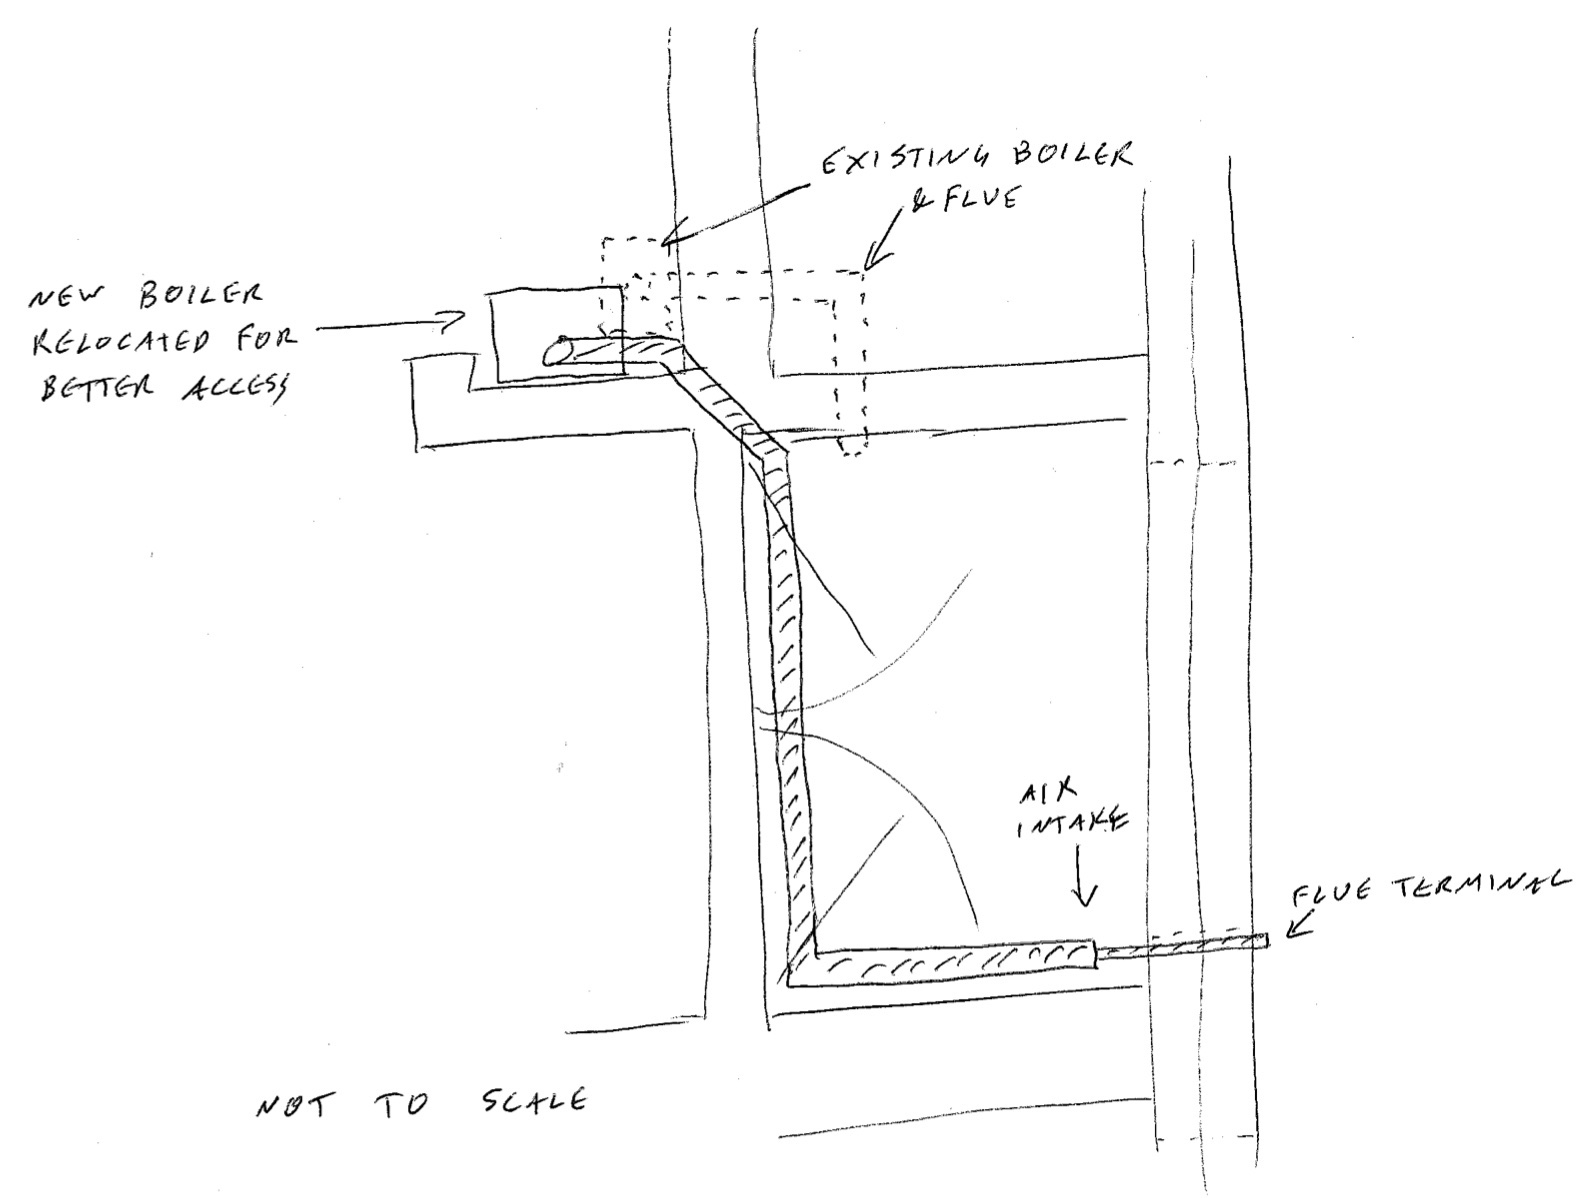 EXISTING BOILER
& FLUE
NEW BOILER
RELOCATED FOR
BETTER ACCESS
AIR
INTAKE
FLUE TERMINAL
NOT TO SCALE